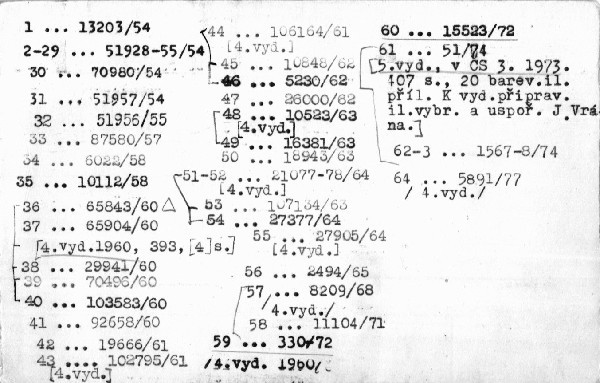 1 ... 13203/54
2-29 ... 51928-55/54
30 ... 70980/54
31 ... 51957/54
32 ... 51956/55
33 ... 87580/57
34 ... 6022/58
35 ... 10112/58
36 ... 65843/60 △
37 ... 65904/60
[4.vyd.1960, 393, [4]s.]
38 ... 29941/60
39 ... 70496/60
40 ... 103583/60
41 ... 92658/60
42 ... 19666/61
43 .... 102795/61
[4.vyd.]
44 ... 106164/61
[4.vyd.]
45 ... 10848/62
46 ... 5230/62
47 ... 26000/62
48 ... 10523/63
[4.vyd.]
49 ... 16381/63
50 ... 18943/63
51-52 ... 21077-78/64
[4.vyd.]
53 ... 107134/63
54 ... 27377/64
55 ... 27905/64
[4.vyd.]
56 ... 2494/65
57 ... 8209/68
/4.vyd./
58 ... 11104/71
59 ... 330/72
/4.vyd. 1960/
60 ... 15523/72
61 ... 51/74
[5.vyd., v ČS 3. 1973.
407 s., 20 barev.il.
příl. K vyd.připrav.
il.vybr. a uspoř. J.Vrá-
na.]
62-3 ... 1567-8/74
64 ... 5891/77
/ 4.vyd./